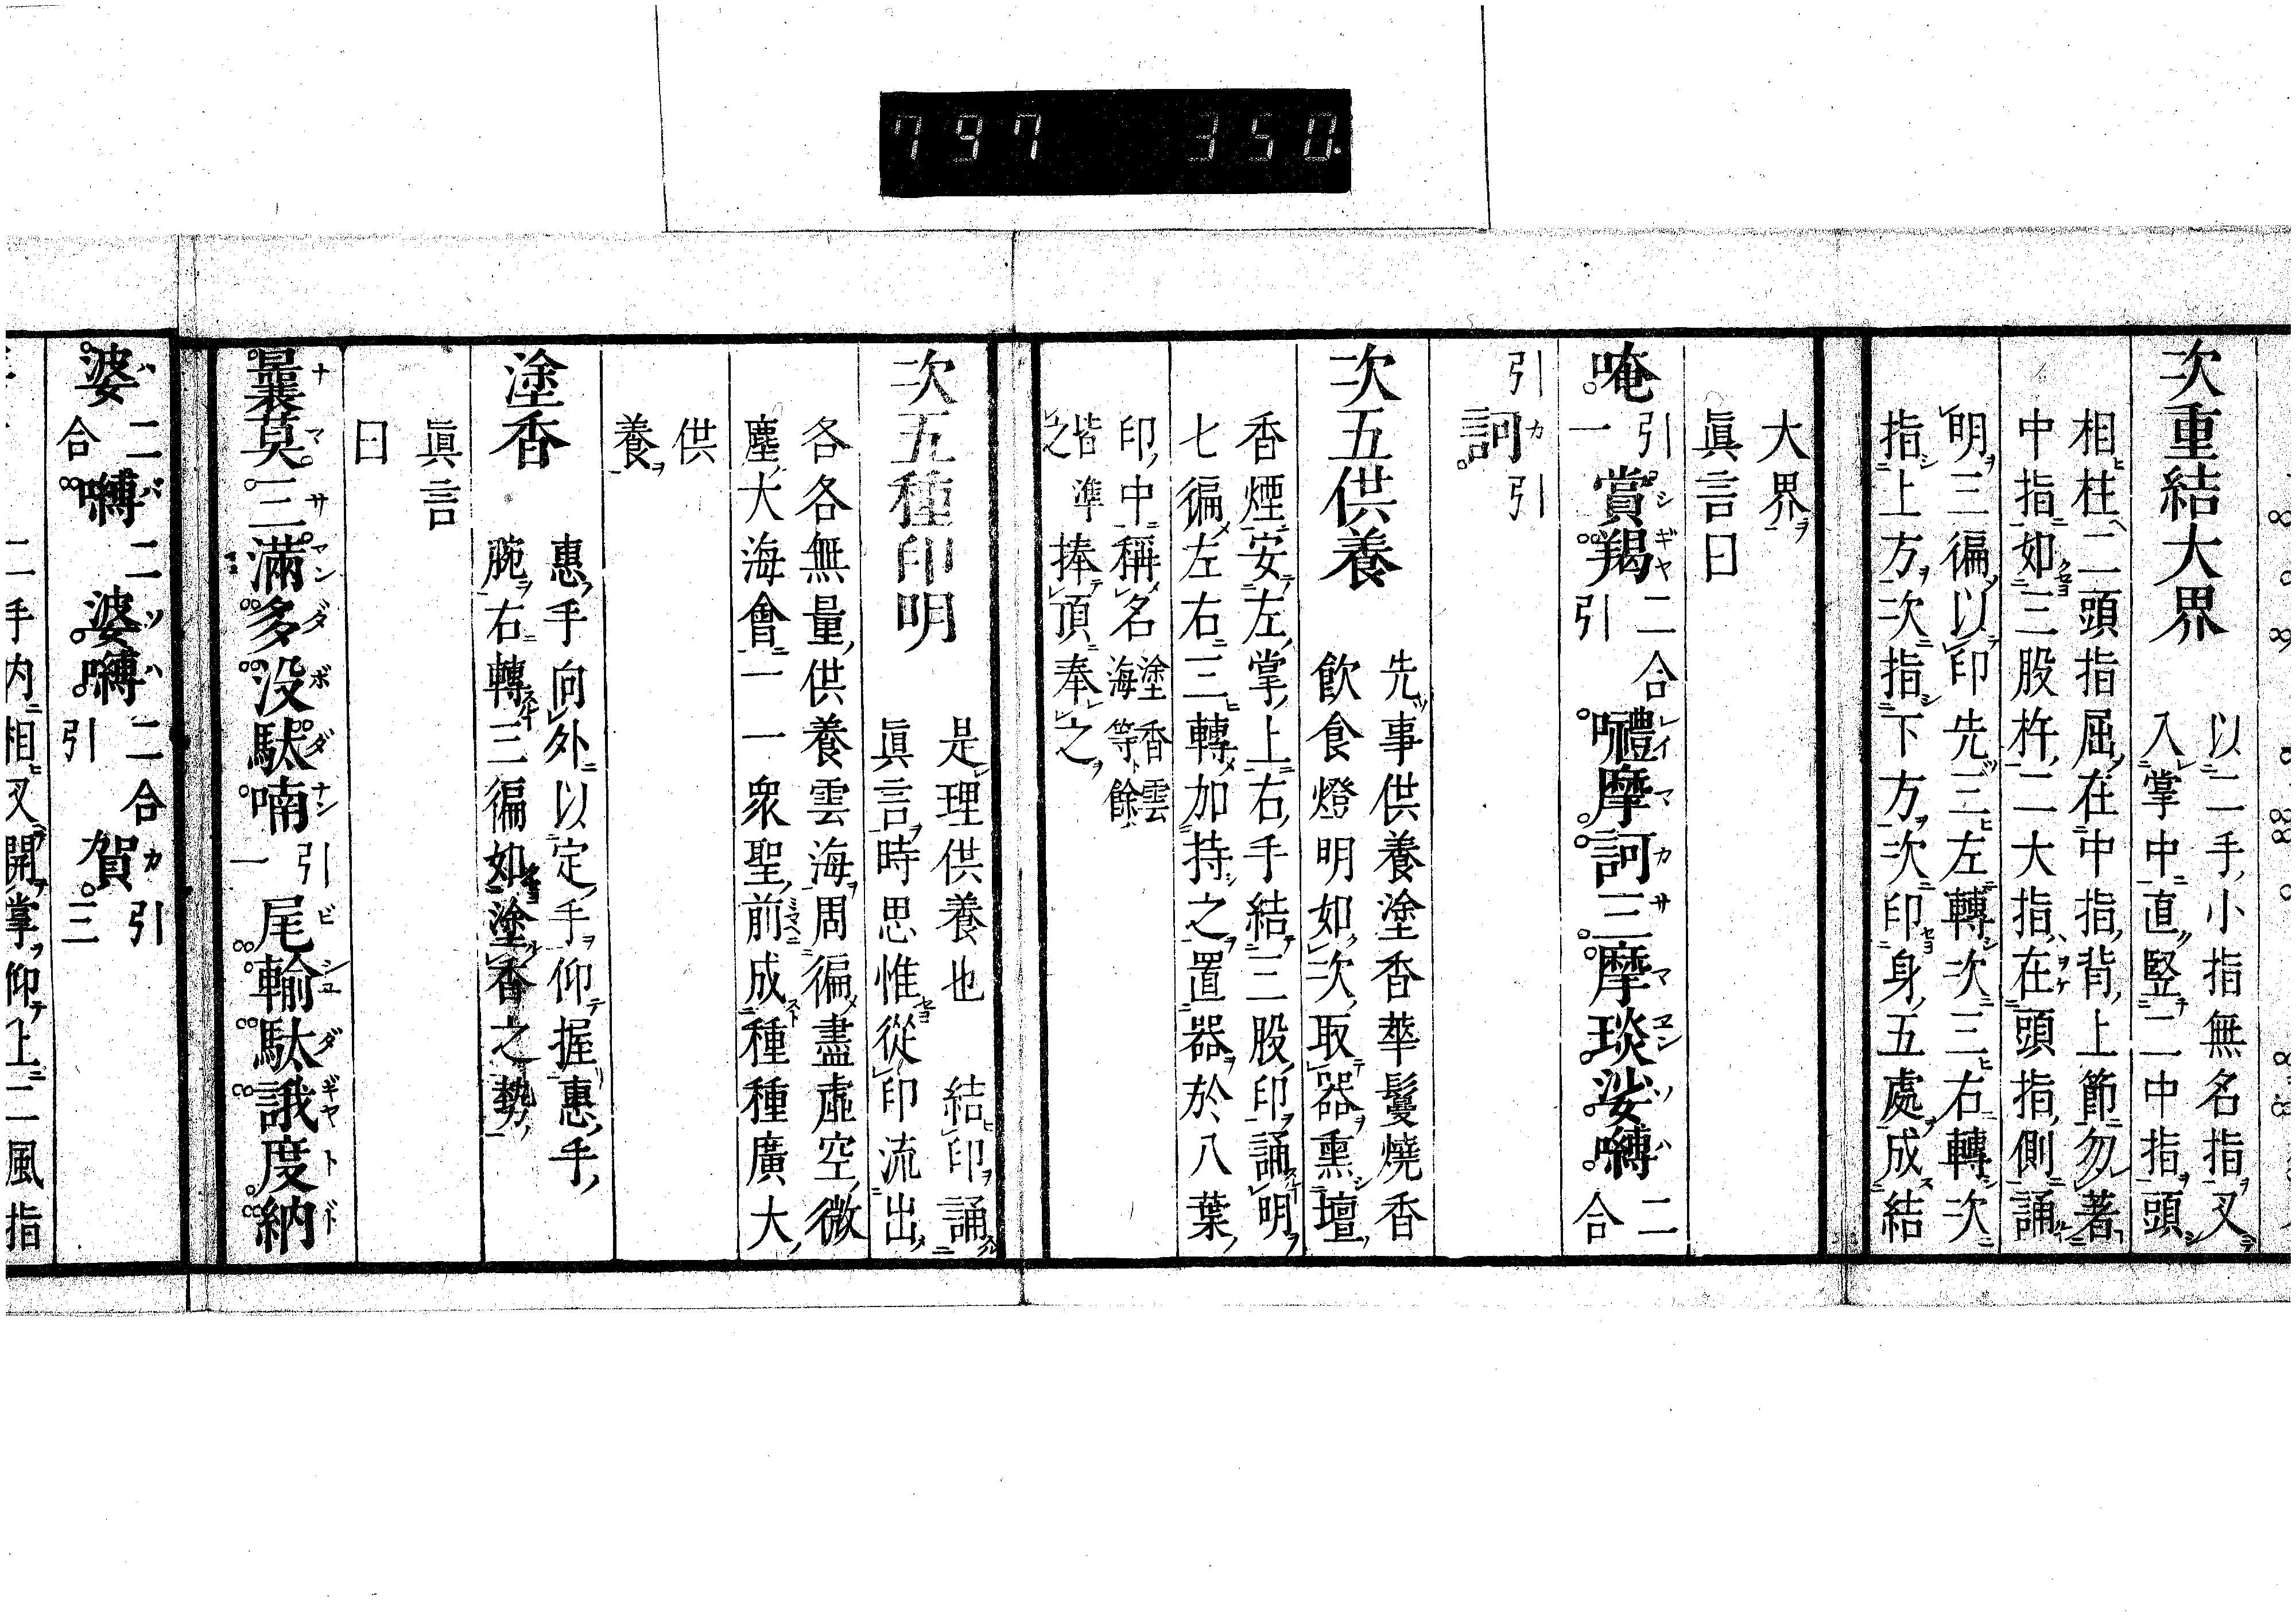 797 350.
次重結大界 以二手小指無名指叉
入掌中直竪二中指頭
相柱二頭指屈在中指背上節勿著
中指如三股杵二大指在頭指側誦
明三徧以印先三左轉次三右轉次
指上方次指下方次印身五處成結
大界
眞言曰
唵引一賞羯二合引囉摩訶三摩琰娑嚩二合
引訶引
次五供養 先事供養塗香華鬘燒香
飲食燈明如次取器熏壇
香煙安左掌上右手結三股印誦明
七徧左右三轉加持之置器於八葉
印中稱名塗香雲海等餘
皆準之捧頂奉之
次五種印明 是理供養也 結印誦
眞言時思惟從印流出
各各無量供養雲海周徧盡虛空微
塵大海會一一眾聖前成種種廣大
供
養
塗香 惠手向外以定手仰握惠手
腕右轉三徧如塗香之勢
眞言
曰
曩莫三滿多沒馱喃引一尾輸馱誐度納
婆二合嚩二婆嚩二合引賀引三
二手內相叉開掌仰上二風指